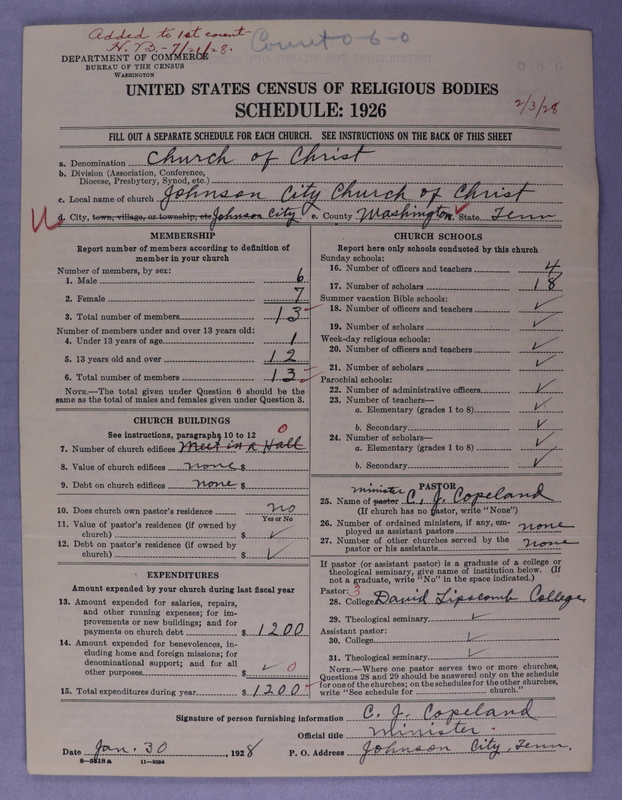 Added to 1st count
H. B. - 7/21/28.
Count 0-6-0
DEPARTMENT OF COMMERCE
BUREAU OF THE CENSUS
WASHINGTON
UNITED STATES CENSUS OF RELIGIOUS BODIES
SCHEDULE: 1926
2/3/28
FILL OUT A SEPARATE SCHEDULE FOR EACH CHURCH. SEE INSTRUCTIONS ON THE BACK OF THIS SHEET
a. Denomination Church of Christ
b. Division (Association, Conference,
Diocese, Presbytery, Synod, etc.)
c. Local name of church Johnson City Church of Christ
d. City, town, village, or township, etc. Johnson City e. County Washington f. State Tenn
MEMBERSHIP
Report number of members according to definition of
member in your church
Number of members, by sex:
1. Male 6
2. Female 7
3. Total number of members 13
Number of members under and over 13 years old:
4. Under 13 years of age 1
5. 13 years old and over 12
6. Total number of members 13
NOTE.—The total given under Question 6 should be the
same as the total of males and females given under Question 3.
CHURCH BUILDINGS
See instructions, paragraphs 10 to 12
0
7. Number of church edifices Meet in a Hall
8. Value of church edifices none $
9. Debt on church edifices none $
10. Does church own pastor's residence no
Yes or No
11. Value of pastor's residence (if owned by
church) $ ✓
12. Debt on pastor's residence (if owned by
church) $ ✓
EXPENDITURES
Amount expended by your church during last fiscal year
13. Amount expended for salaries, repairs,
and other running expenses; for im-
provements or new buildings; and for
payments on church debt $ 1200
14. Amount expended for benevolences, in-
cluding home and foreign missions; for
denominational support; and for all
other purposes $ ✓ 0
15. Total expenditures during year $ 1200
CHURCH SCHOOLS
Report here only schools conducted by this church
Sunday schools:
16. Number of officers and teachers 4
17. Number of scholars 18
Summer vacation Bible schools:
18. Number of officers and teachers ✓
19. Number of scholars ✓
Week-day religious schools:
20. Number of officers and teachers ✓
21. Number of scholars ✓
Parochial schools:
22. Number of administrative officers ✓
23. Number of teachers—
a. Elementary (grades 1 to 8) ✓
b. Secondary ✓
24. Number of scholars—
a. Elementary (grades 1 to 8) ✓
b. Secondary ✓
PASTOR
minister
25. Name of pastor C. J. Copeland
(If church has no pastor, write "None")
26. Number of ordained ministers, if any, em-
ployed as assistant pastors none
27. Number of other churches served by the
pastor or his assistants none
If pastor (or assistant pastor) is a graduate of a college or
theological seminary, give name of institution below. (If
not a graduate, write "No" in the space indicated.)
Pastor: 3
28. College David Lipscomb College
29. Theological seminary ✓
Assistant pastor:
30. College ✓
31. Theological seminary ✓
NOTE.—Where one pastor serves two or more churches,
Questions 28 and 29 should be answered only on the schedule
for one of the churches; on the schedules for the other churches,
write "See schedule for church."
Signature of person furnishing information C. J. Copeland
Official title minister
Date Jan. 30, 1928 P. O. Address Johnson City, Tenn.
8—5518 a 11—9064